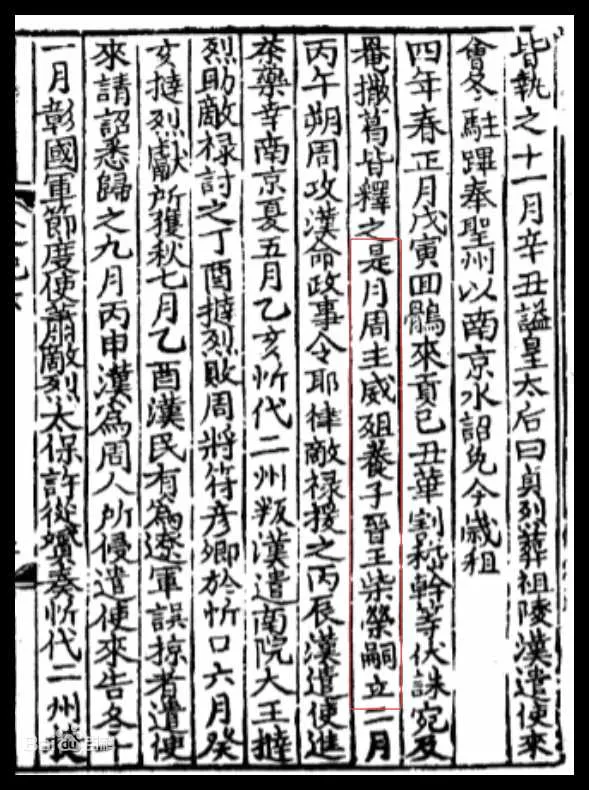 皆執之十一月辛丑謚皇太后曰貞烈葬祖陵漢遣使來
會冬駐蹕奉聖州以南京水詔免今歲租
四年春正月戊寅回鶻來貢己丑華割嵇幹等伏誅宛及
罨撒葛皆釋之是月周主威殂養子晉王柴榮嗣立二月
丙午朔周攻漢命政事令耶律敵祿援之丙辰漢遣使進
茶藥幸南京夏五月乙亥忻代二州叛漢遣南院大王撻
烈助敵祿討之丁酉撻烈敗周將符彥卿於忻口六月癸
亥撻烈獻所獲秋七月乙酉漢民有為遼軍誤掠者遣使
來請詔悉歸之九月丙申漢為周人所侵遣使來告冬十
一月彰國軍節度使蕭敵烈太保許從贇奏忻代二州捷
Baidu百科